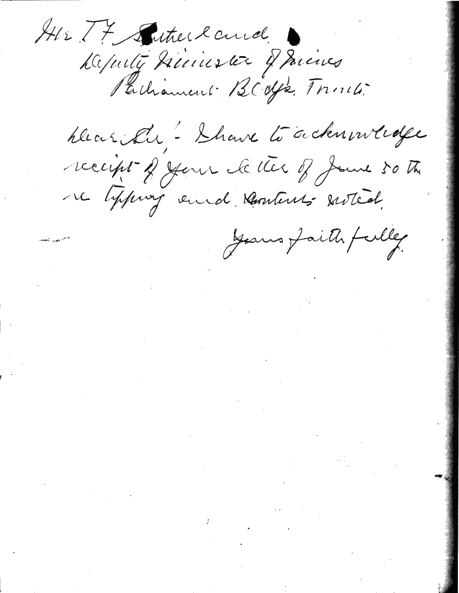 Mr T F Sutherland
Deputy Minister of Mines
Parliament Bldgs. Toronto.
Dear Sir, - I have to acknowledge
receipt of your letter of June 30 th
re and contents noted.
Yours faithfully